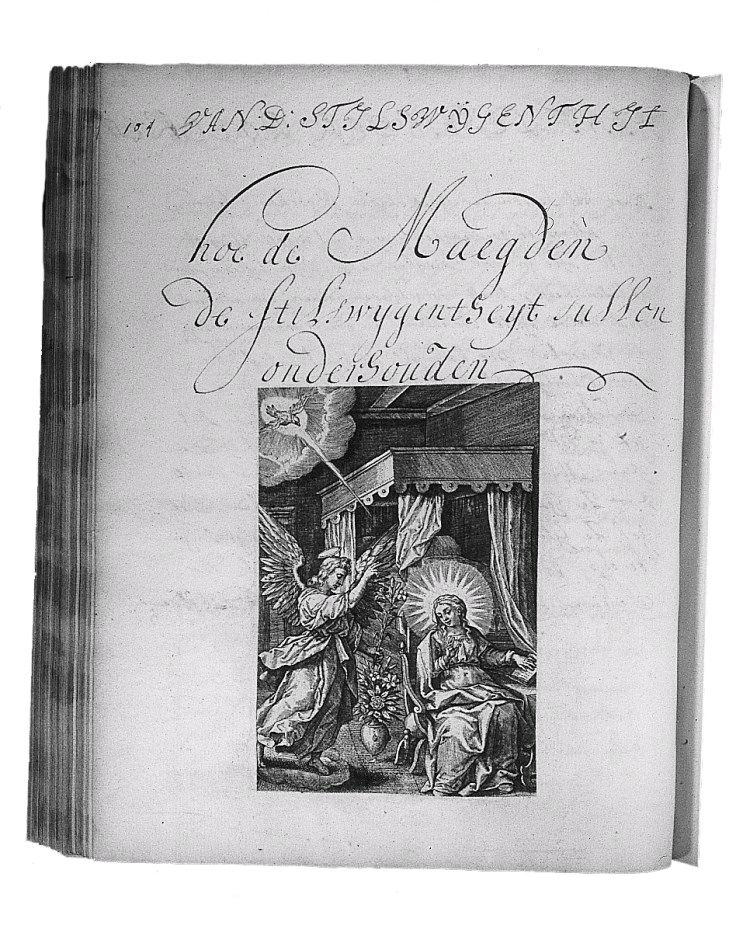 104 VAN D: STILSWŸGENTHEIT
hoe de Maegdèn
De stilswygentheyt sullen
onderhouden